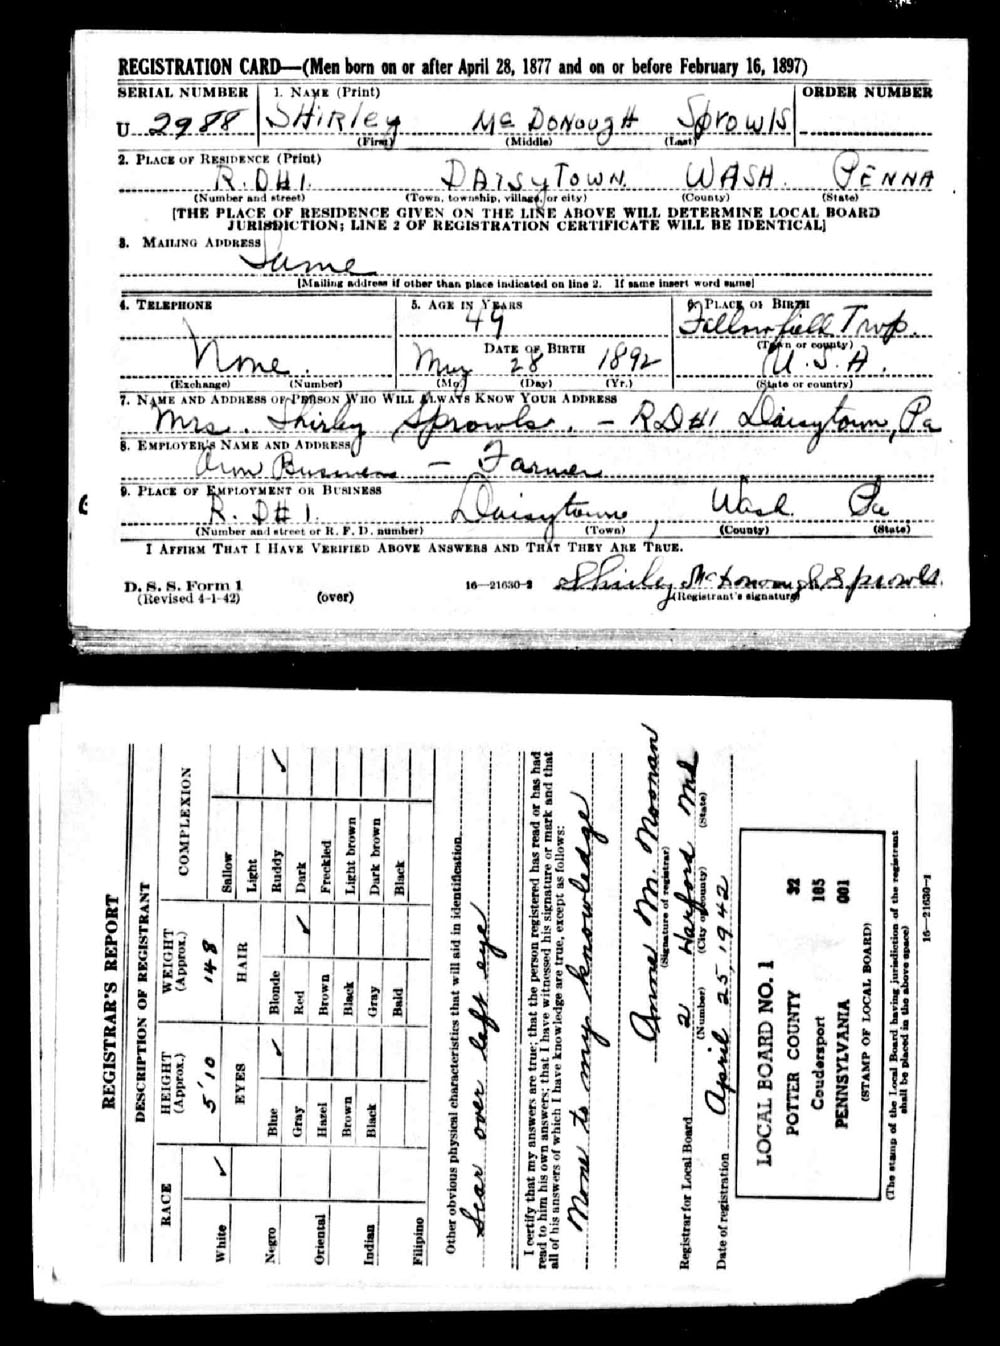 REGISTRATION CARD—(Men born on or after April 28, 1877 and on or before February 16, 1897)
SERIAL NUMBER 1. NAME (Print) ORDER NUMBER
U 2988 SHIRLEY McDONOUGH SPROWLS
(First) (Middle) (Last)
2. PLACE OF RESIDENCE (Print)
R.D#1. DAISYTOWN. WASH. PENNA
(Number and street) (Town, township, village, or city) (County) (State)
[THE PLACE OF RESIDENCE GIVEN ON THE LINE ABOVE WILL DETERMINE LOCAL BOARD
JURISDICTION; LINE 2 OF REGISTRATION CERTIFICATE WILL BE IDENTICAL]
3. MAILING ADDRESS
Same
[Mailing address if other than place indicated on line 2. If same insert word same]
4. TELEPHONE 5. AGE IN YEARS 6. PLACE OF BIRTH
49 Fallowfield Twp.
DATE OF BIRTH (Town or county)
None. 28 1892 U.S.A.
(Exchange) (Number) (Mo.) (Day) (Yr.) (State or country)
7. NAME AND ADDRESS OF PERSON WHO WILL ALWAYS KNOW YOUR ADDRESS
Mrs. Shirley Sprowls. - R.D#1 Daisytown, Pa
8. EMPLOYER'S NAME AND ADDRESS
Own Business - Farmer
9. PLACE OF EMPLOYMENT OR BUSINESS
R.D#1. Daisytown, Wash. Pa
(Number and street or R. F. D. number) (Town) (County) (State)
I AFFIRM THAT I HAVE VERIFIED ABOVE ANSWERS AND THAT THEY ARE TRUE.
D. S. S. Form 1 16—21630-2 Shirley McDonough Sprowls.
(Revised 4-1-42) (over) (Registrant's signature)
REGISTRAR'S REPORT
DESCRIPTION OF REGISTRANT
RACE HEIGHT (Approx.) WEIGHT (Approx.) COMPLEXION
5'10 148
White ✓ EYES HAIR Sallow
Light
Negro Blue ✓ Blonde Ruddy ✓
Gray Red ✓ Dark
Oriental Hazel Brown Freckled
Brown Black Light brown
Indian Black Gray Dark brown
Bald Black
Filipino
Other obvious physical characteristics that will aid in identification
Scar over left eye
I certify that my answers are true; that the person registered has read or has had
read to him his own answers; that I have witnessed his signature or mark and that
all of his answers of which I have knowledge are true, except as follows:
None to my knowledge
Anne M. Moonan
(Signature of registrar)
Registrar for Local Board 2 Harford Md
(Number) (City or county) (State)
Date of registration April 25, 1942
LOCAL BOARD NO. 1
POTTER COUNTY 32
Coudersport 105
PENNSYLVANIA 001
(STAMP OF LOCAL BOARD)
(The stamp of the Local Board having jurisdiction of the registrant
shall be placed in the above space)
16—21630-1